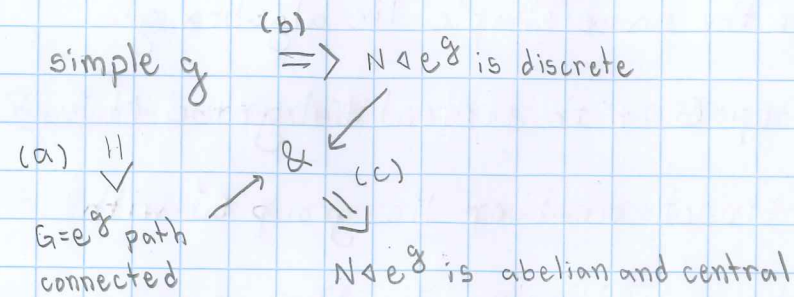 (b)
simple g ⟹ N ⊲ e^g is discrete
(a) ⇓ & (c)
G = e^g path ⇘
connected N ⊲ e^g is abelian and central